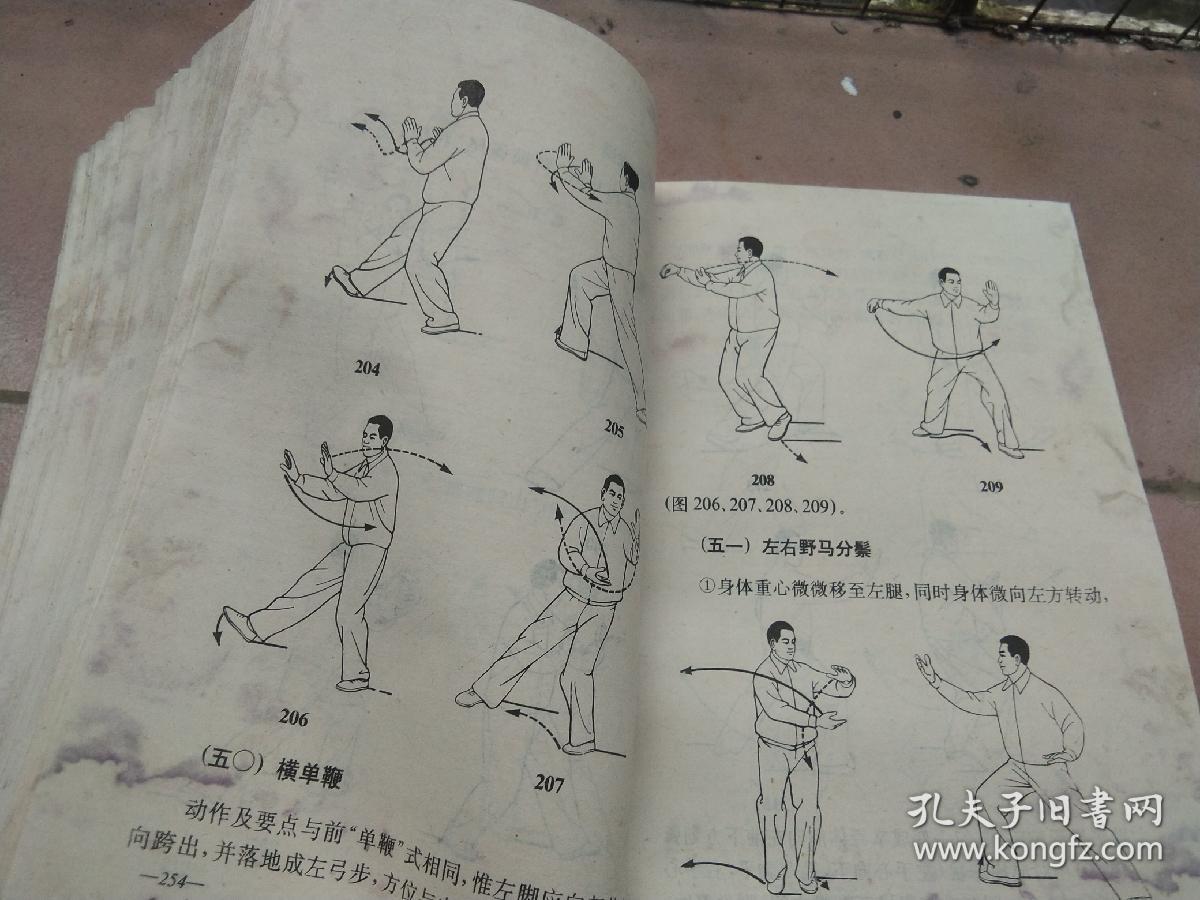 204
205
206
207
(五〇) 横单鞭
动作及要点与前“单鞭”式相同，惟左脚应向
向跨出，并落地成左弓步，方位与
—254—
208
209
(图 206、207、208、209)。
(五一) 左右野马分鬃
①身体重心微微移至左腿，同时身体微向左方转动，
孔夫子旧書网
www.kongfz.com